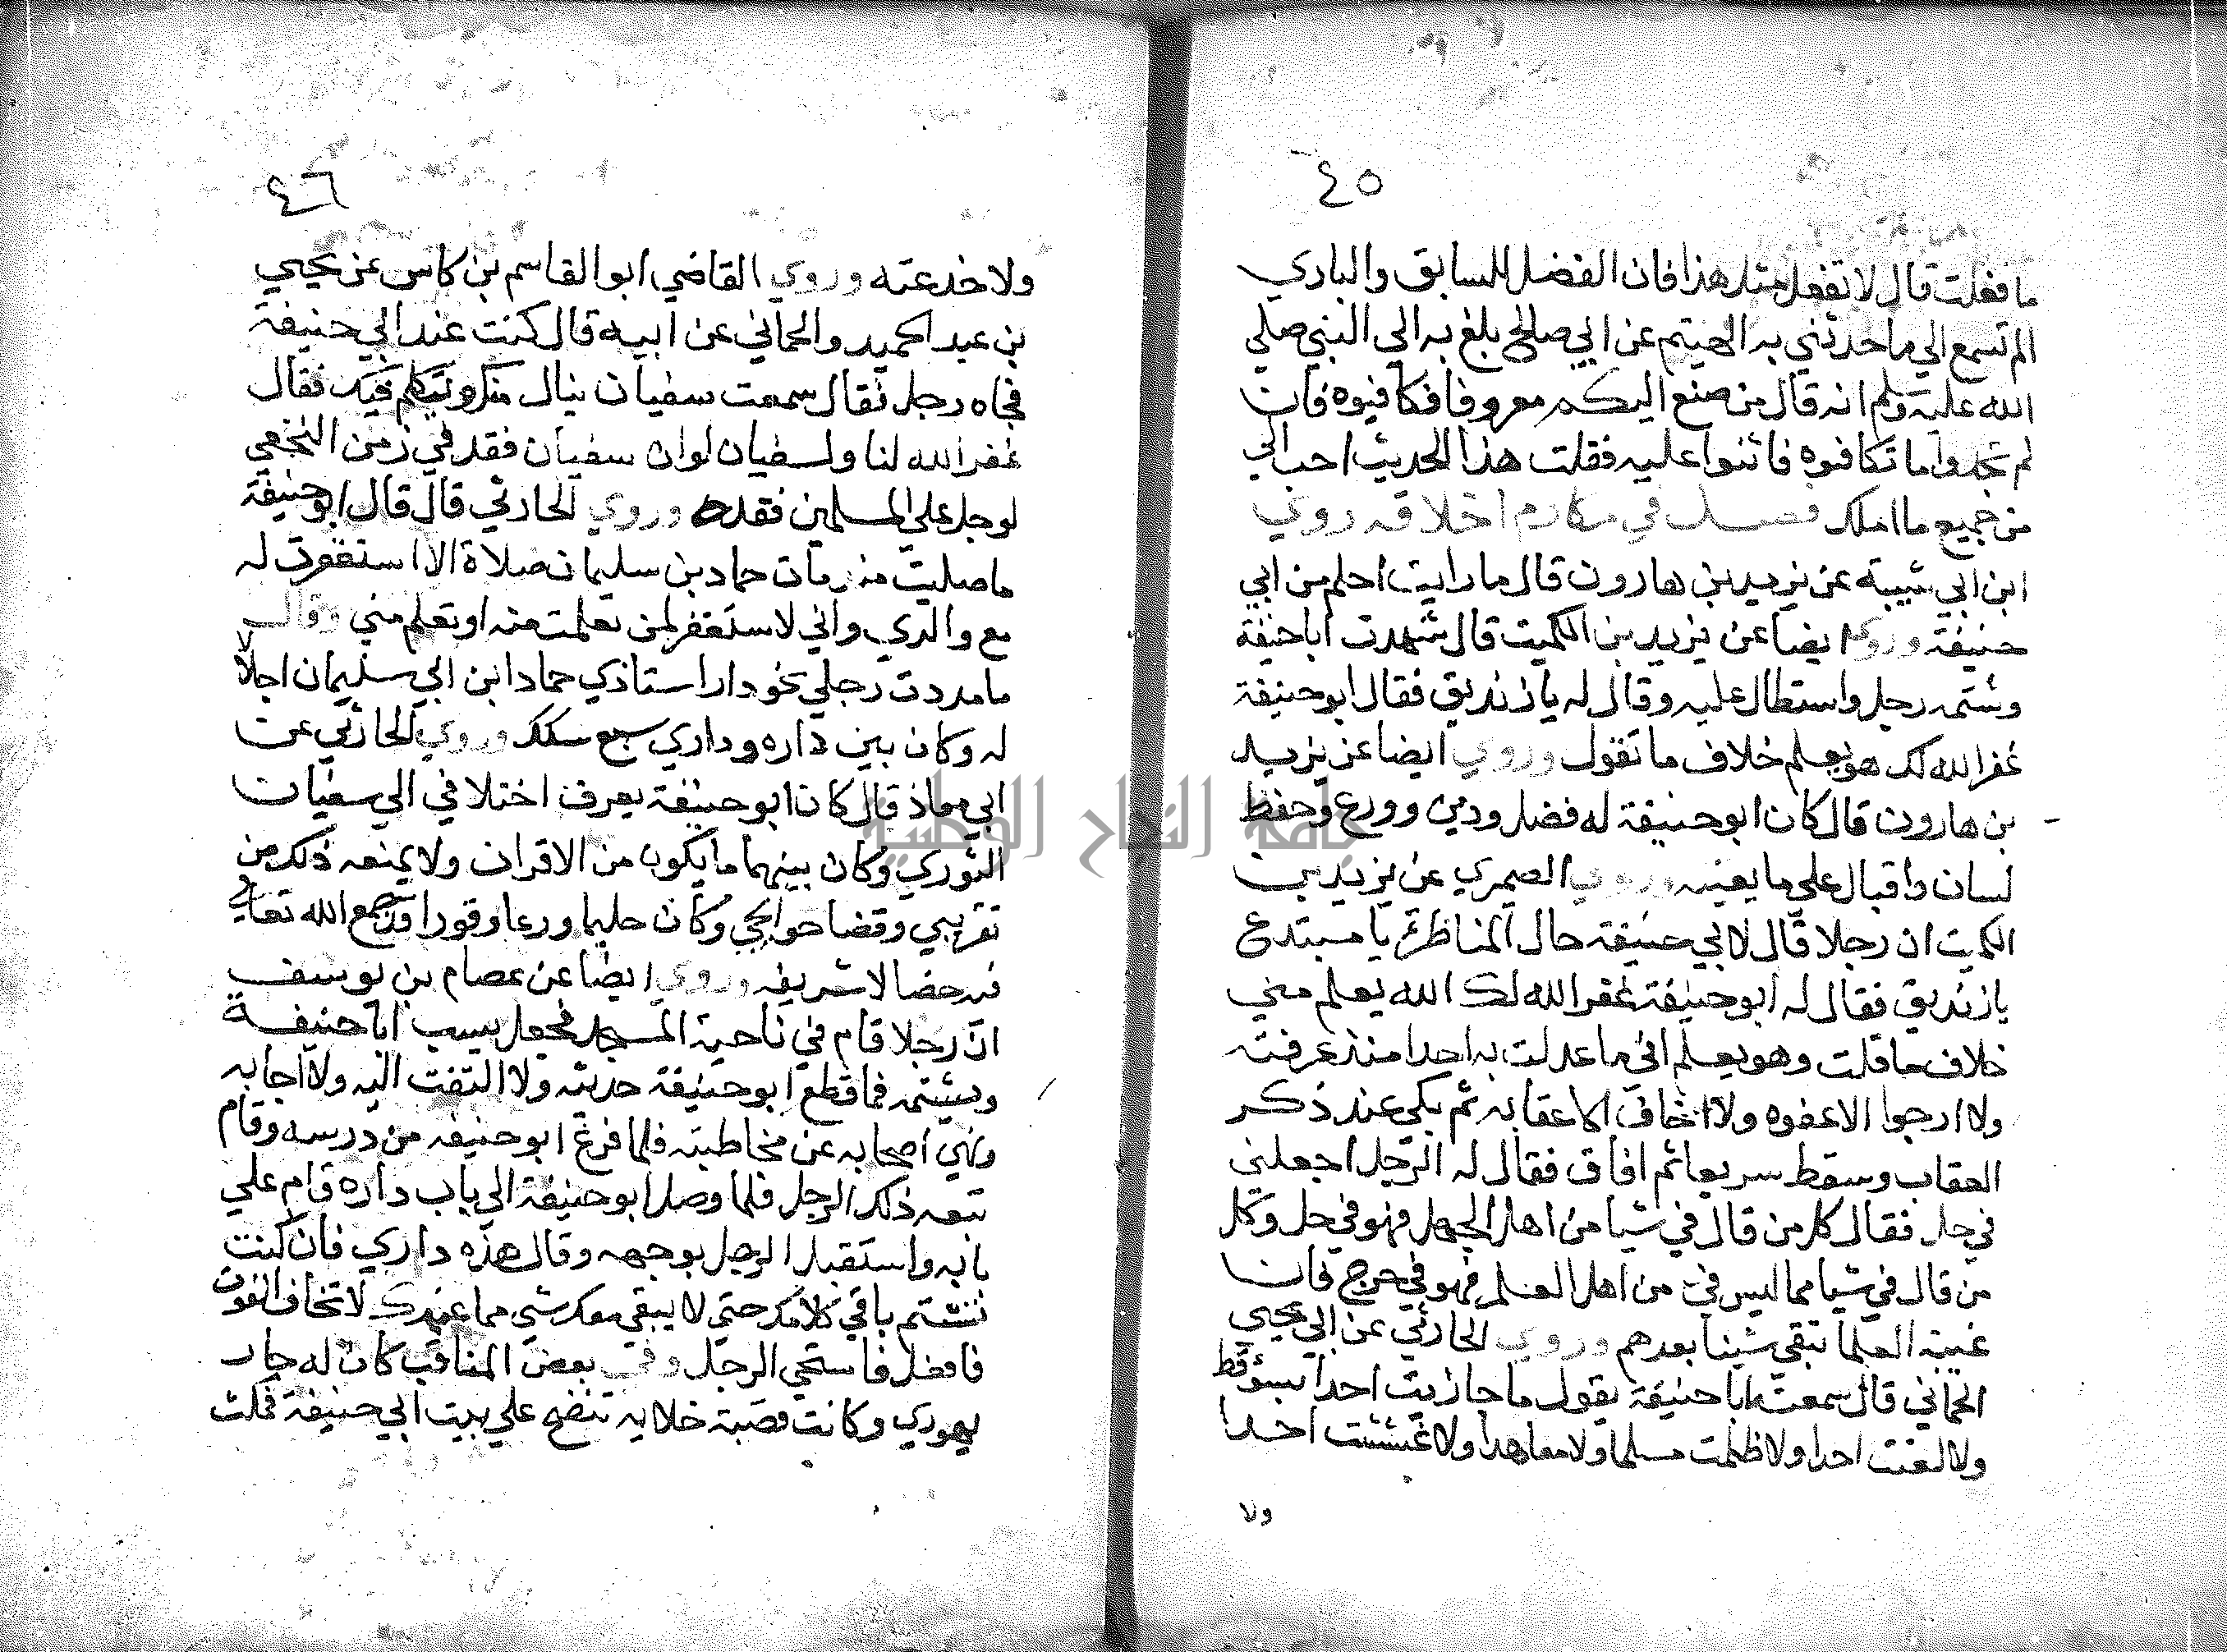 ٤٥
ما فعلت قال لا تفعل مثل هذا فان الفضل للسابق والبادي
الم تسمع الي ما حدثني به الهيثم عن ابي صالح بلغ به الي النبي صلي
الله عليه وسلم انه قال من صنع اليكم معروفا فكافيوه فان
لم تجدوا ما تكافوه فاثنوا عليه فقلت هذا الحديث احب الي
من جميع ما املك فصل في مكارم اخلاقه روي
ابن ابي شيبة عن يزيد بن هارون قال ما رايت احلم من ابي
حنيفة وروي ايضا عن يزيد بن الكميت قال شهدت ابا حنيفة
وشتمه رجل واستطال عليه وقال له يا زنديق فقال ابو حنيفة
غفر الله لك هو يعلم خلاف ما تقول وروي ايضا عن يزيد
بن هارون قال كان ابو حنيفة له فضل ودين وورع وحفظ
لسان واقبال علي ما يعنيه وروي الصيمري عن يزيد بن
الكميت ان رجلا قال لابي حنيفة حال المناظرة يا مبتدع
يا زنديق فقال له ابو حنيفة غفر الله لك الله يعلم مني
خلاف ما قلت وهو يعلم اني ما عدلت به احدا منذ عرفته
ولا ارجوا الا عفوه ولا اخاف الا عقابه ثم بكي عند ذكر
العقاب وسقط سريعا ثم افاق فقال له الرجل اجعلني
في حل فقال كل من قال في شيا من اهل الجهل فهو في حل وكل
من قال في شيا مما ليس في من اهل العلم فهو في حرج فان
غيبة العلما تبقي شينا بعدهم وروي الحارثي عن ابي يحيي
الحماني قال سمعت ابا حنيفة يقول ما جازيت احدا بسوء قط
ولا لعنت احدا ولا ظلمت مسلما ولا معاهدا ولا غششت احدا
ولا
٤٦
ولا خدعته وروي القاضي ابو القاسم بن كاس عن يحيي
بن عبد الحميد والحماني عن ابيه قال كنت عند ابي حنيفة
فجاه رجل فقال سمعت سفيان ينال منك ويتكلم فيك فقال
غفر الله لنا ولسفيان لو ان سفيان فقد في زمن النخعي
لوجل علي المسلمين فقده وروي الحارثي قال قال ابو حنيفة
ما صليت منذ مات حماد بن سليمان صلاة الا استغفرت له
مع والدي واني لاستغفر لمن تعلمت منه او تعلم مني وقال
ما مددت رجلي نحو دار استاذي حماد ابن ابي سليمان اجلالا
له وكان بين داره وداري سبع سكك وروي الحارثي عن
ابي معاذ قال كان ابو حنيفة يعرف اختلافي الي سفيان
الثوري وكان بينهما ما يكون من الاقران ولا يمنعه ذلك من
تقريبي وقضا حوايجي وكان حليما ورعا وقورا قد جمع الله تعالي
فيه خصالا شريفه وروي ايضا عن عصام بن يوسف
ان رجلا قام في ناحية المسجد فجعل يسب ابا حنيفة
ويشتمه فما قطع ابو حنيفة حديثه ولا التفت اليه ولا اجابه
ونهي اصحابه عن مخاطبته فلما فرغ ابو حنيفه من درسه وقام
تبعه ذلك الرجل فلما وصل ابو حنيفة الي باب داره قام علي
بابه واستقبل الرجل بوجهه وقال هذه داري فان كنت
تشتم باقي كلامك حتي لا يبقي معك شي مما عندك لا تخاف الفوت
فافعل فاستحي الرجل وفي بعض المناقب كان له جار
يهودي وكانت قصبة خلايه تنضح علي بيت ابي حنيفة فمكث
جامعة النجاح الوطنية